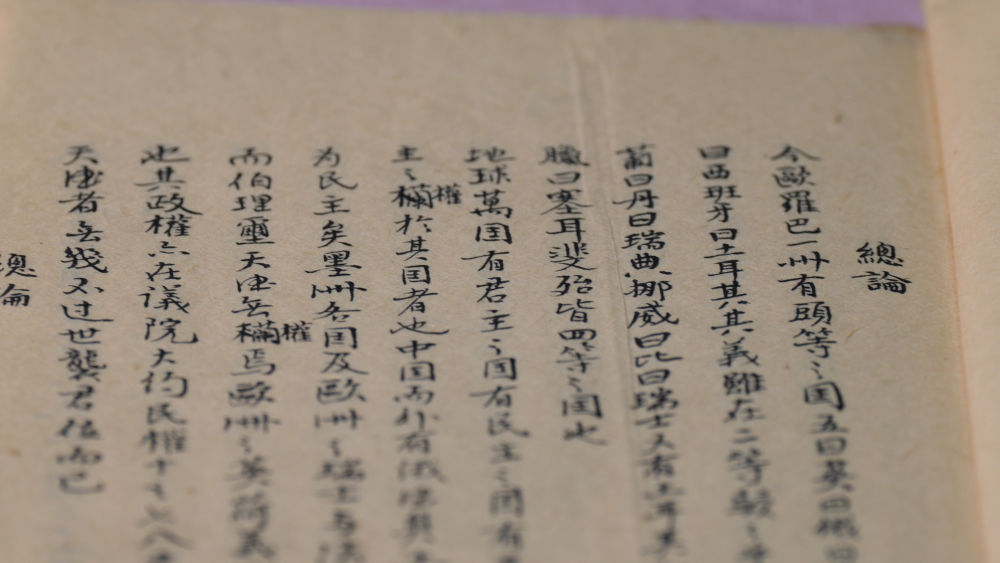 總論
今歐羅巴一洲有頭等之国五曰英曰俄曰
曰西班牙曰土耳其其義雖在二等
葡曰丹曰瑞典挪威曰比曰瑞士又有土耳其
臘曰塞耳斐殆皆四等之国也
地球萬国有君主之国有民主之国有
主之權於其国者也中国而外有俄
權
为民主矣墨洲各国及歐洲之瑞士与法
而伯理璽天德無權焉歐洲之英荷義
權
也其政權亦在議院大約民權十之七八
天德者無幾不过世襲君位而已
總論